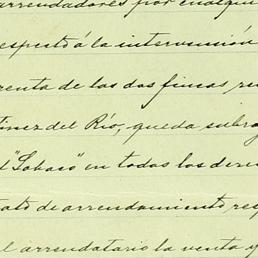 arrendadores por cualqui
respecto á la intervensión
renta de las dos fincas re
tinez del Río, queda subro
l "Lobaco" en todos los dere
ato de arrendamiento resp
el arrendatario la venta y